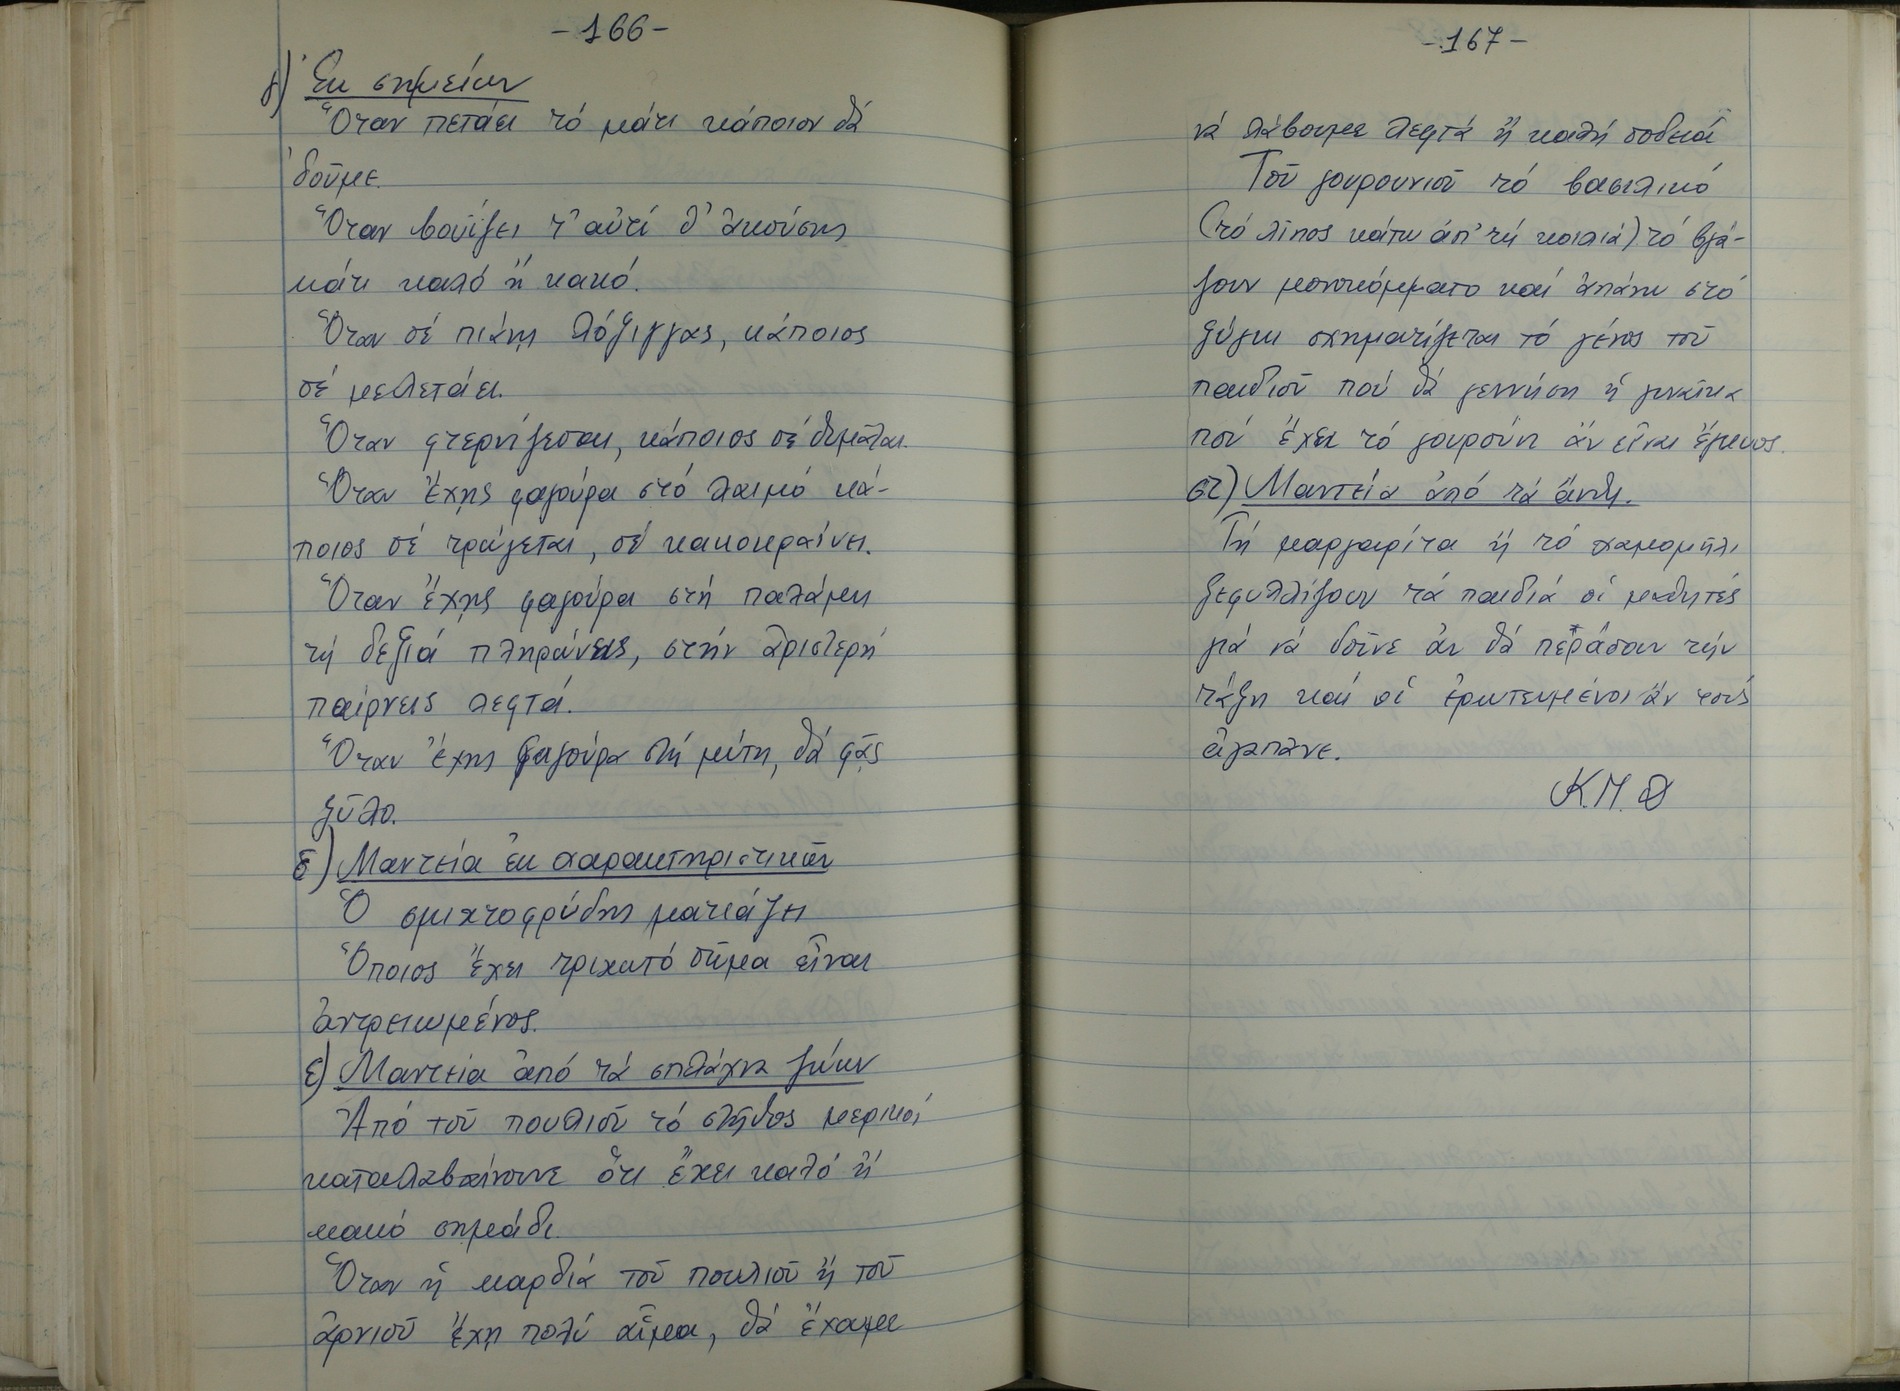 -166-
γ) Ἐκ σημείων
Ὅταν πετάει τό μάτι κάποιον θά
δοῦμε.
Ὅταν βουΐζει τ' αὐτί θ' ἀκούσης
κάτι καλό ἤ κακό.
Ὅταν σέ πιάνῃ λόξιγγας, κάποιος
σέ μελετάει.
Ὅταν φτερνίζεσαι, κάποιος σέ θυμᾶται.
Ὅταν ἔχῃς φαγούρα στό λαιμό κά-
ποιος σέ τρώγεται, σέ κακοκραίνει.
Ὅταν ἔχῃς φαγούρα στή παλάμη
τή δεξιά πληρώνεις, στήν ἀριστερή
παίρνεις λεφτά.
Ὅταν ἔχης φαγούρα στή μύτη, θά φᾶς
ξῦλο.
δ) Μαντεία ἐκ χαρακτηριστικῶν
Ὁ σμιχτοφρύδης ματιάζει
Ὅποιος ἔχει τριχωτό σῶμα εἶναι
ἀντρειωμένος.
ε) Μαντεία ἀπό τά σπλάχνα ζώων
Ἀπό τοῦ πουλιοῦ τό στῆθος μερικοί
καταλαβαίνουνε ὅτι ἔχει καλό ἤ
κακό σημάδι.
Ὅταν ἡ καρδιά τοῦ πουλιοῦ ἤ τοῦ
ἀρνιοῦ ἔχῃ πολύ αἷμα, θά ἔχωμε
-167-
νά λάβουμε λεφτά ἤ καλή σοδειά
Τοῦ γουρουνιοῦ τό βασιλικό
(τό λίπος κάτω ἀπ' τή κοιλιά) τό βγά-
ζουν μονοκόμματο καί ἀπάνω στό
ξύγκι σχηματίζεται τό γένος τοῦ
παιδιοῦ πού θά γεννήση ἡ γυναῖκα
πού ἔχει τό γουρούνι ἄν εἶναι ἔγκυος.
στ) Μαντεία ἀπό τά ἄνθη.
Τή μαργαρίτα ἤ τό χαμομῆλι
ξεφυλλίζουν τά παιδιά οἱ μαθητές
γιά νά δοῦνε ἄν θά περάσουν τήν
τάξη καί οἱ ἐρωτευμένοι ἄν τούς
ἀγαπᾶνε.